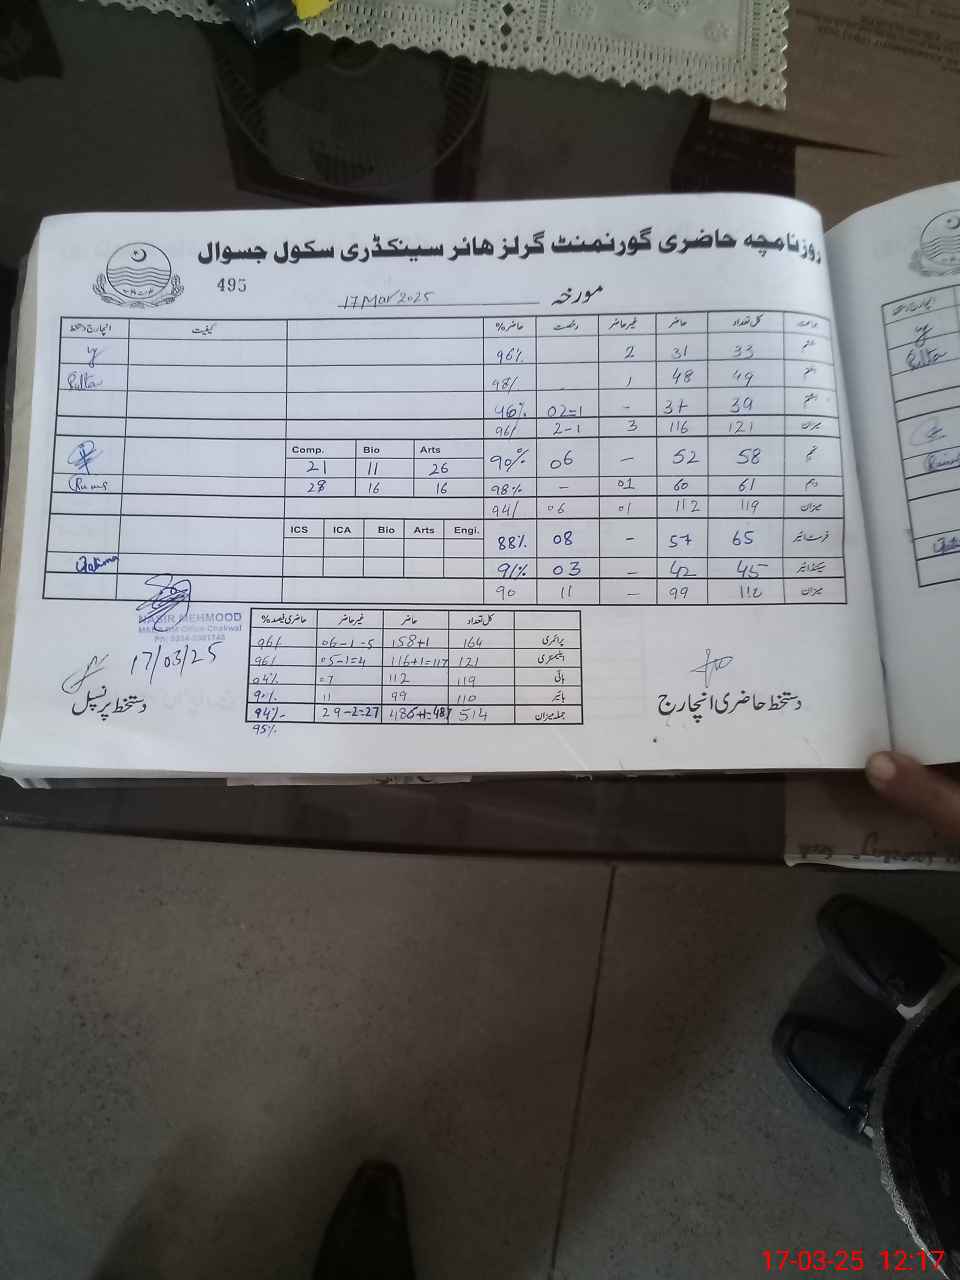 روزنامچہ حاضری گورنمنٹ گرلز ہائر سیکنڈری سکول جسوال
495
مورخہ 17 Mar 2025
جماعت کل تعداد حاضر غیر حاضر رخصت حاضر% کیفیت
ششم 33 31 2 96%
ہفتم 49 48 1 98/
ہشتم 39 37 - 02=1 96%
میزان 121 116 3 2-1 96/
Comp. Bio Arts
نہم 58 52 - 06 90% 21 11 26
دہم 61 60 01 - 98% 28 16 16
میزان 119 112 01 06 94/
ICS ICA Bio Arts Engi.
فرسٹ ائیر 65 57 - 08 88%
سیکنڈ ائیر 45 42 - 03 91%
میزان 110 99 - 11 90
کل تعداد حاضر غیر حاضر حاضری فیصد%
پرائمری 164 158+1 06-1-5 96/
ایلیمنٹری 121 116+1=117 05-1=4 96/
ہائی 119 112 07 94%
ہائیر 110 99 11 90%
جملہ میزان 514 486+1=487 29-2=27 94%
95%
NASIR MEHMOOD
17/03/25
دستخط حاضری انچارج
دستخط پرنسپل
17-03-25 12:17